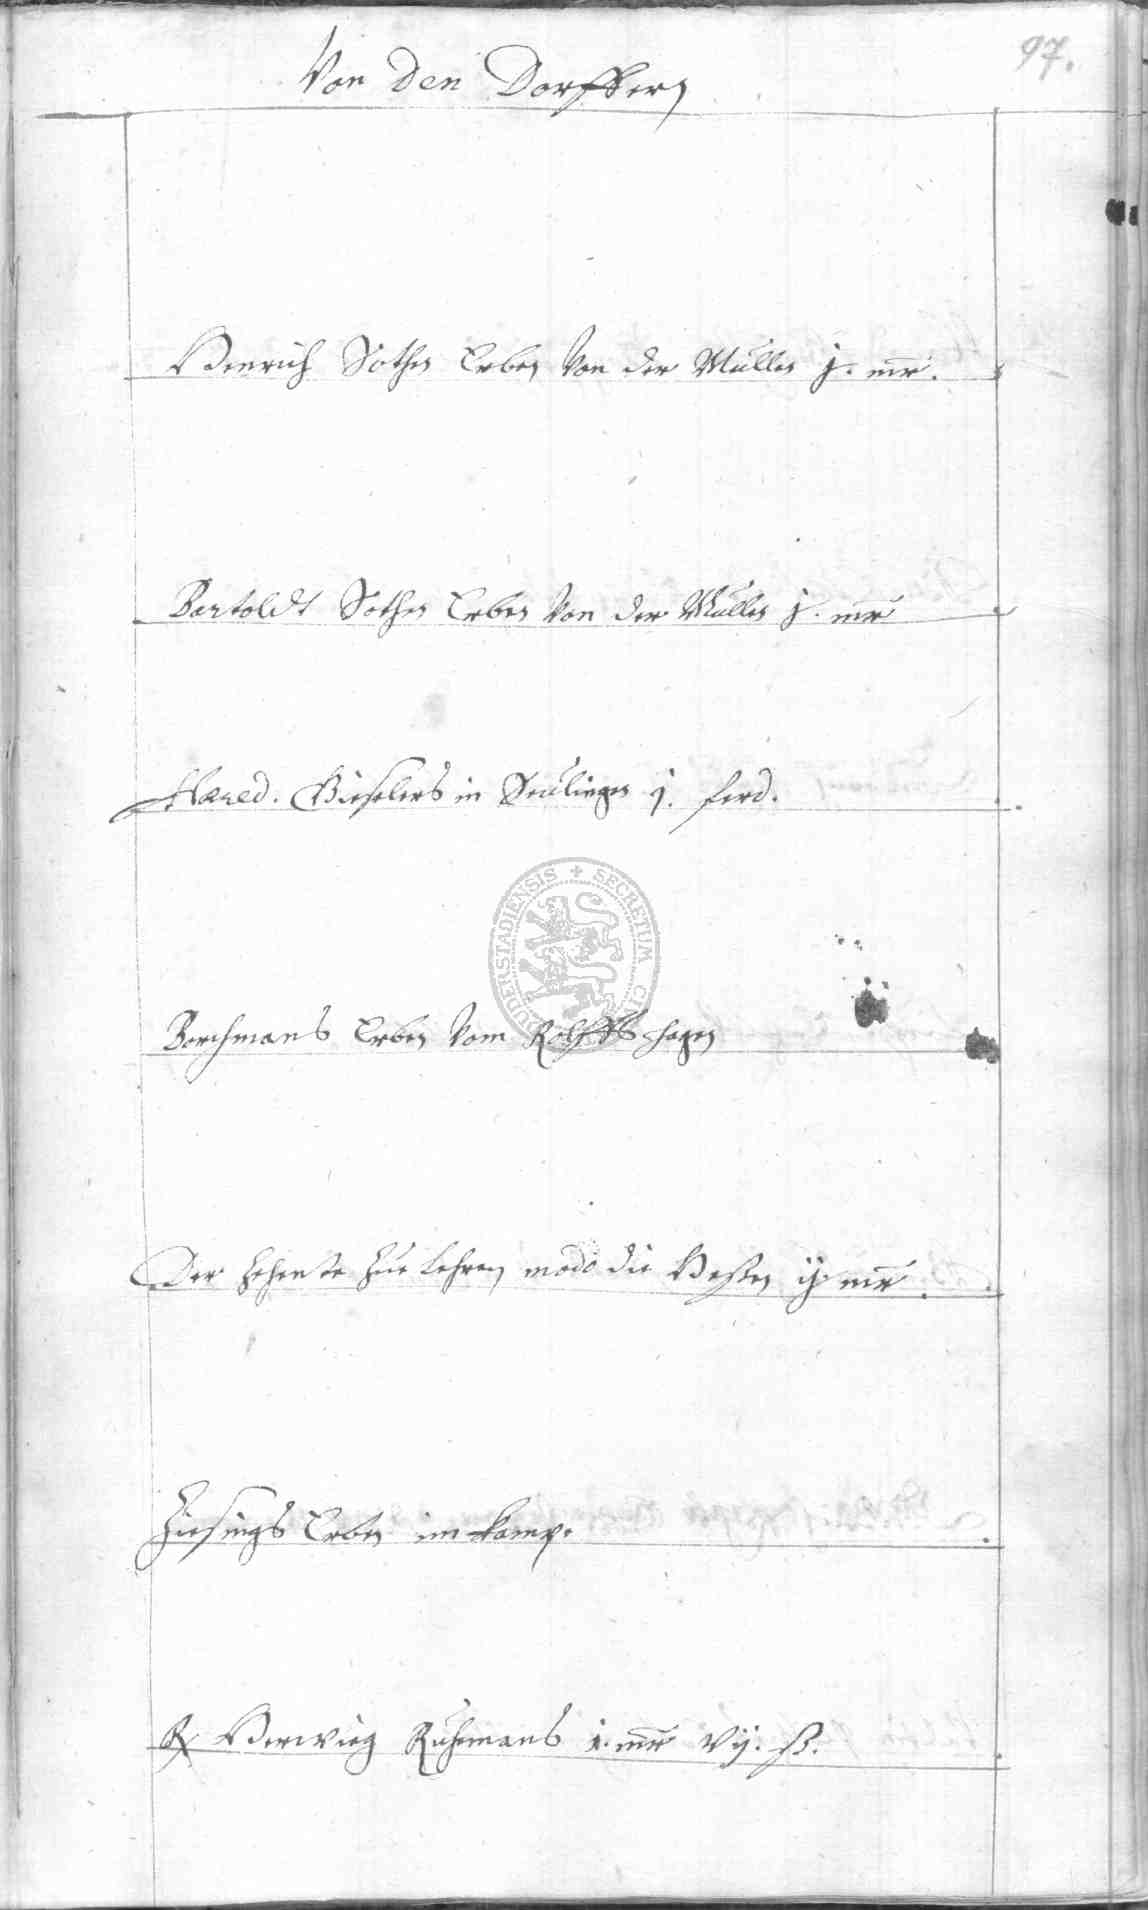 97.
Von den Dorffern
Henrich Sothen Erben Von der Mullen j. mr.
Bartoldt Sothen Erben Von der Mullen j. mr
Hæred. Gieselers in Seulingen j. ferd.
Borchmans Erben Vom Rolffshagen
Der Zehente zue Lehren modo die Westen ij mr.
Ziesings Erben im Kamp.
R Herwieg Ruhmans j. mr vij. ß.
DUDERSTADIENSIS + SECRETUM CI